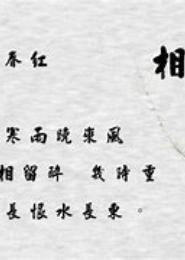 相
春紅
寒雨晚來風
相留醉 幾時重
長恨水長東。